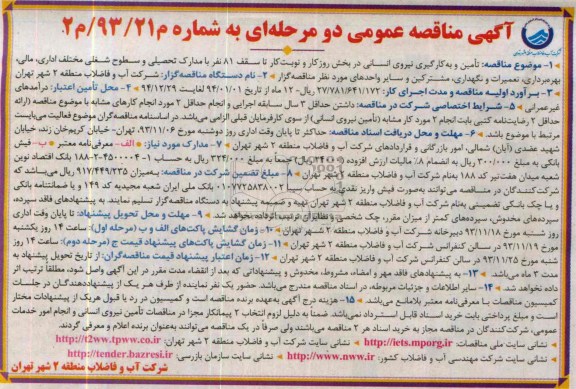 آگهی مناقصه عمومی دو مرحله‌ای به شماره م۹۳/۲۱/م۲
۱- موضوع مناقصه: تأمین و به‌کارگیری نیروی انسانی در بخش روزکار و نوبت‌کار تا سقف ۸۱ نفر با مدارک تحصیلی و سطوح شغلی مختلف اداری، مالی،
بهره‌برداری، تعمیرات و نگهداری، مشترکین و سایر واحدهای مورد نظر مناقصه‌گزار ۲- نام دستگاه مناقصه‌گزار: شرکت آب و فاضلاب منطقه ۲ شهر تهران
۳- برآورد اولیه مناقصه و مدت اجرای کار: ۲۷/۷۸۱/۶۴۱/۱۷۲ ریال- ۱۲ ماه از تاریخ ۹۴/۰۱/۰۱ لغایت ۹۴/۱۲/۲۹ ۴- محل تأمین اعتبار: درآمدهای
غیرعمرانی ۵- شرایط اختصاصی شرکت در مناقصه: داشتن حداقل ۳ سال سابقه اجرایی و انجام حداقل ۲ مورد انجام کارهای مشابه با موضوع مناقصه (ارائه
حداقل ۲ رضایت‌نامه کتبی بابت انجام ۲ مورد کار مشابه (تأمین نیروی انسانی) از سوی کارفرمایان قبلی الزامی می‌باشد. در اساسنامه مناقصه‌گران موضوع فعالیت می‌بایست
مرتبط با موضوع باشد. ۶- مهلت و محل دریافت اسناد مناقصه: حداکثر تا پایان وقت اداری روز دوشنبه مورخ ۹۳/۱۱/۰۶، تهران- خیابان کریم‌خان زند، خیابان
شهید عضدی (آبان) شمالی، امور بازرگانی و قراردادهای شرکت آب و فاضلاب منطقه ۲ شهر تهران ۷- مدارک مورد نیاز: الف- معرفی‌نامه معتبر ب- فیش
بانکی به مبلغ ۳۰۰/۰۰۰ ریال به انضمام ۸٪ مالیات ارزش افزوده جمعاً به مبلغ ۳۲۴/۰۰۰ ریال به حساب بانک اقتصاد نوین
شعبه میدان هفت‌تیر کد ۱۸۸ به‌نام شرکت آب و فاضلاب منطقه ۲ شهر تهران ۸- مبلغ تضمین شرکت در مناقصه: به‌میزان ۹۱۷/۴۴۹/۲۳۵ ریال می‌باشد که
شرکت‌کنندگان در مناقصه می‌توانند به‌صورت فیش واریز نقدی به حساب بانک ملی ایران شعبه مجیدیه کد ۱۴۹ و یا ضمانتنامه بانکی
و یا چک بانکی تضمینی به‌نام شرکت آب و فاضلاب منطقه ۲ شهر تهران تهیه و ضمیمه پیشنهاد به دستگاه مناقصه‌گزار تسلیم نمایند. به پیشنهادهای فاقد سپرده،
سپرده‌های مخدوش، سپرده‌های کمتر از میزان مقرر، چک شخصی و نظایر آن ترتیب اثر داده نخواهد شد. ۹- مهلت و محل تحویل پیشنهادها: تا پایان وقت اداری
روز شنبه مورخ ۹۳/۱۱/۱۸ دبیرخانه شرکت آب و فاضلاب منطقه ۲ شهر تهران ۱۰- زمان گشایش پاکت‌های الف و ب (مرحله اول): ساعت ۱۴ روز یکشنبه
مورخ ۹۳/۱۱/۱۹ در سالن کنفرانس شرکت آب و فاضلاب منطقه ۲ شهر تهران ۱۱- زمان گشایش پاکت‌های پیشنهاد قیمت ج (مرحله دوم): ساعت ۱۴ روز
شنبه مورخ ۹۳/۱۱/۲۵ در سالن کنفرانس شرکت آب و فاضلاب منطقه ۲ شهر تهران ۱۲- زمان اعتبار پیشنهاد قیمت مناقصه‌گران: از تاریخ تحویل پیشنهاد به
مدت ۳ ماه می‌باشد. ۱۳- به پیشنهادهای فاقد مهر و امضاء، مشروط، مخدوش و پیشنهاداتی که بعد از انقضاء مدت مقرر در این آگهی واصل شود، مطلقاً ترتیب اثر
داده نخواهد شد. ۱۴- سایر اطلاعات و جزئیات مربوطه، در اسناد مناقصه مندرج می‌باشد. حضور یک نفر نماینده از طرف هر یک از پیشنهاددهندگان در جلسات
کمیسیون مناقصات با معرفی‌نامه معتبر بلامانع می‌باشد. ۱۵- هزینه درج آگهی به‌عهده برنده مناقصه است و کمیسیون در رد یا قبول هر یک از پیشنهادات مختار
است و مبلغ پرداختی بابت خرید اسناد قابل استرداد نمی‌باشد. ضمناً به دلیل لزوم انتخاب ۲ پیمانکار مجزا در مناقصات تأمین نیروی انسانی و انجام امور خدمات
عمومی، شرکت‌کنندگان در مناقصه مجاز به خرید اسناد هر ۲ مناقصه می‌باشند ولی صرفاً در یک مناقصه می‌توانند به‌عنوان برنده اعلام و معرفی گردند.
نشانی سایت ملی مناقصات: http://iets.mporg.ir نشانی سایت شرکت آب و فاضلاب منطقه ۲ شهر تهران: http://t2ww.tpww.co.ir
نشانی سایت شرکت مهندسی آب و فاضلاب کشور: http://www.nww.ir نشانی سایت سازمان بازرسی: http://tender.bazresi.ir
شرکت آب و فاضلاب منطقه ۲ شهر تهران